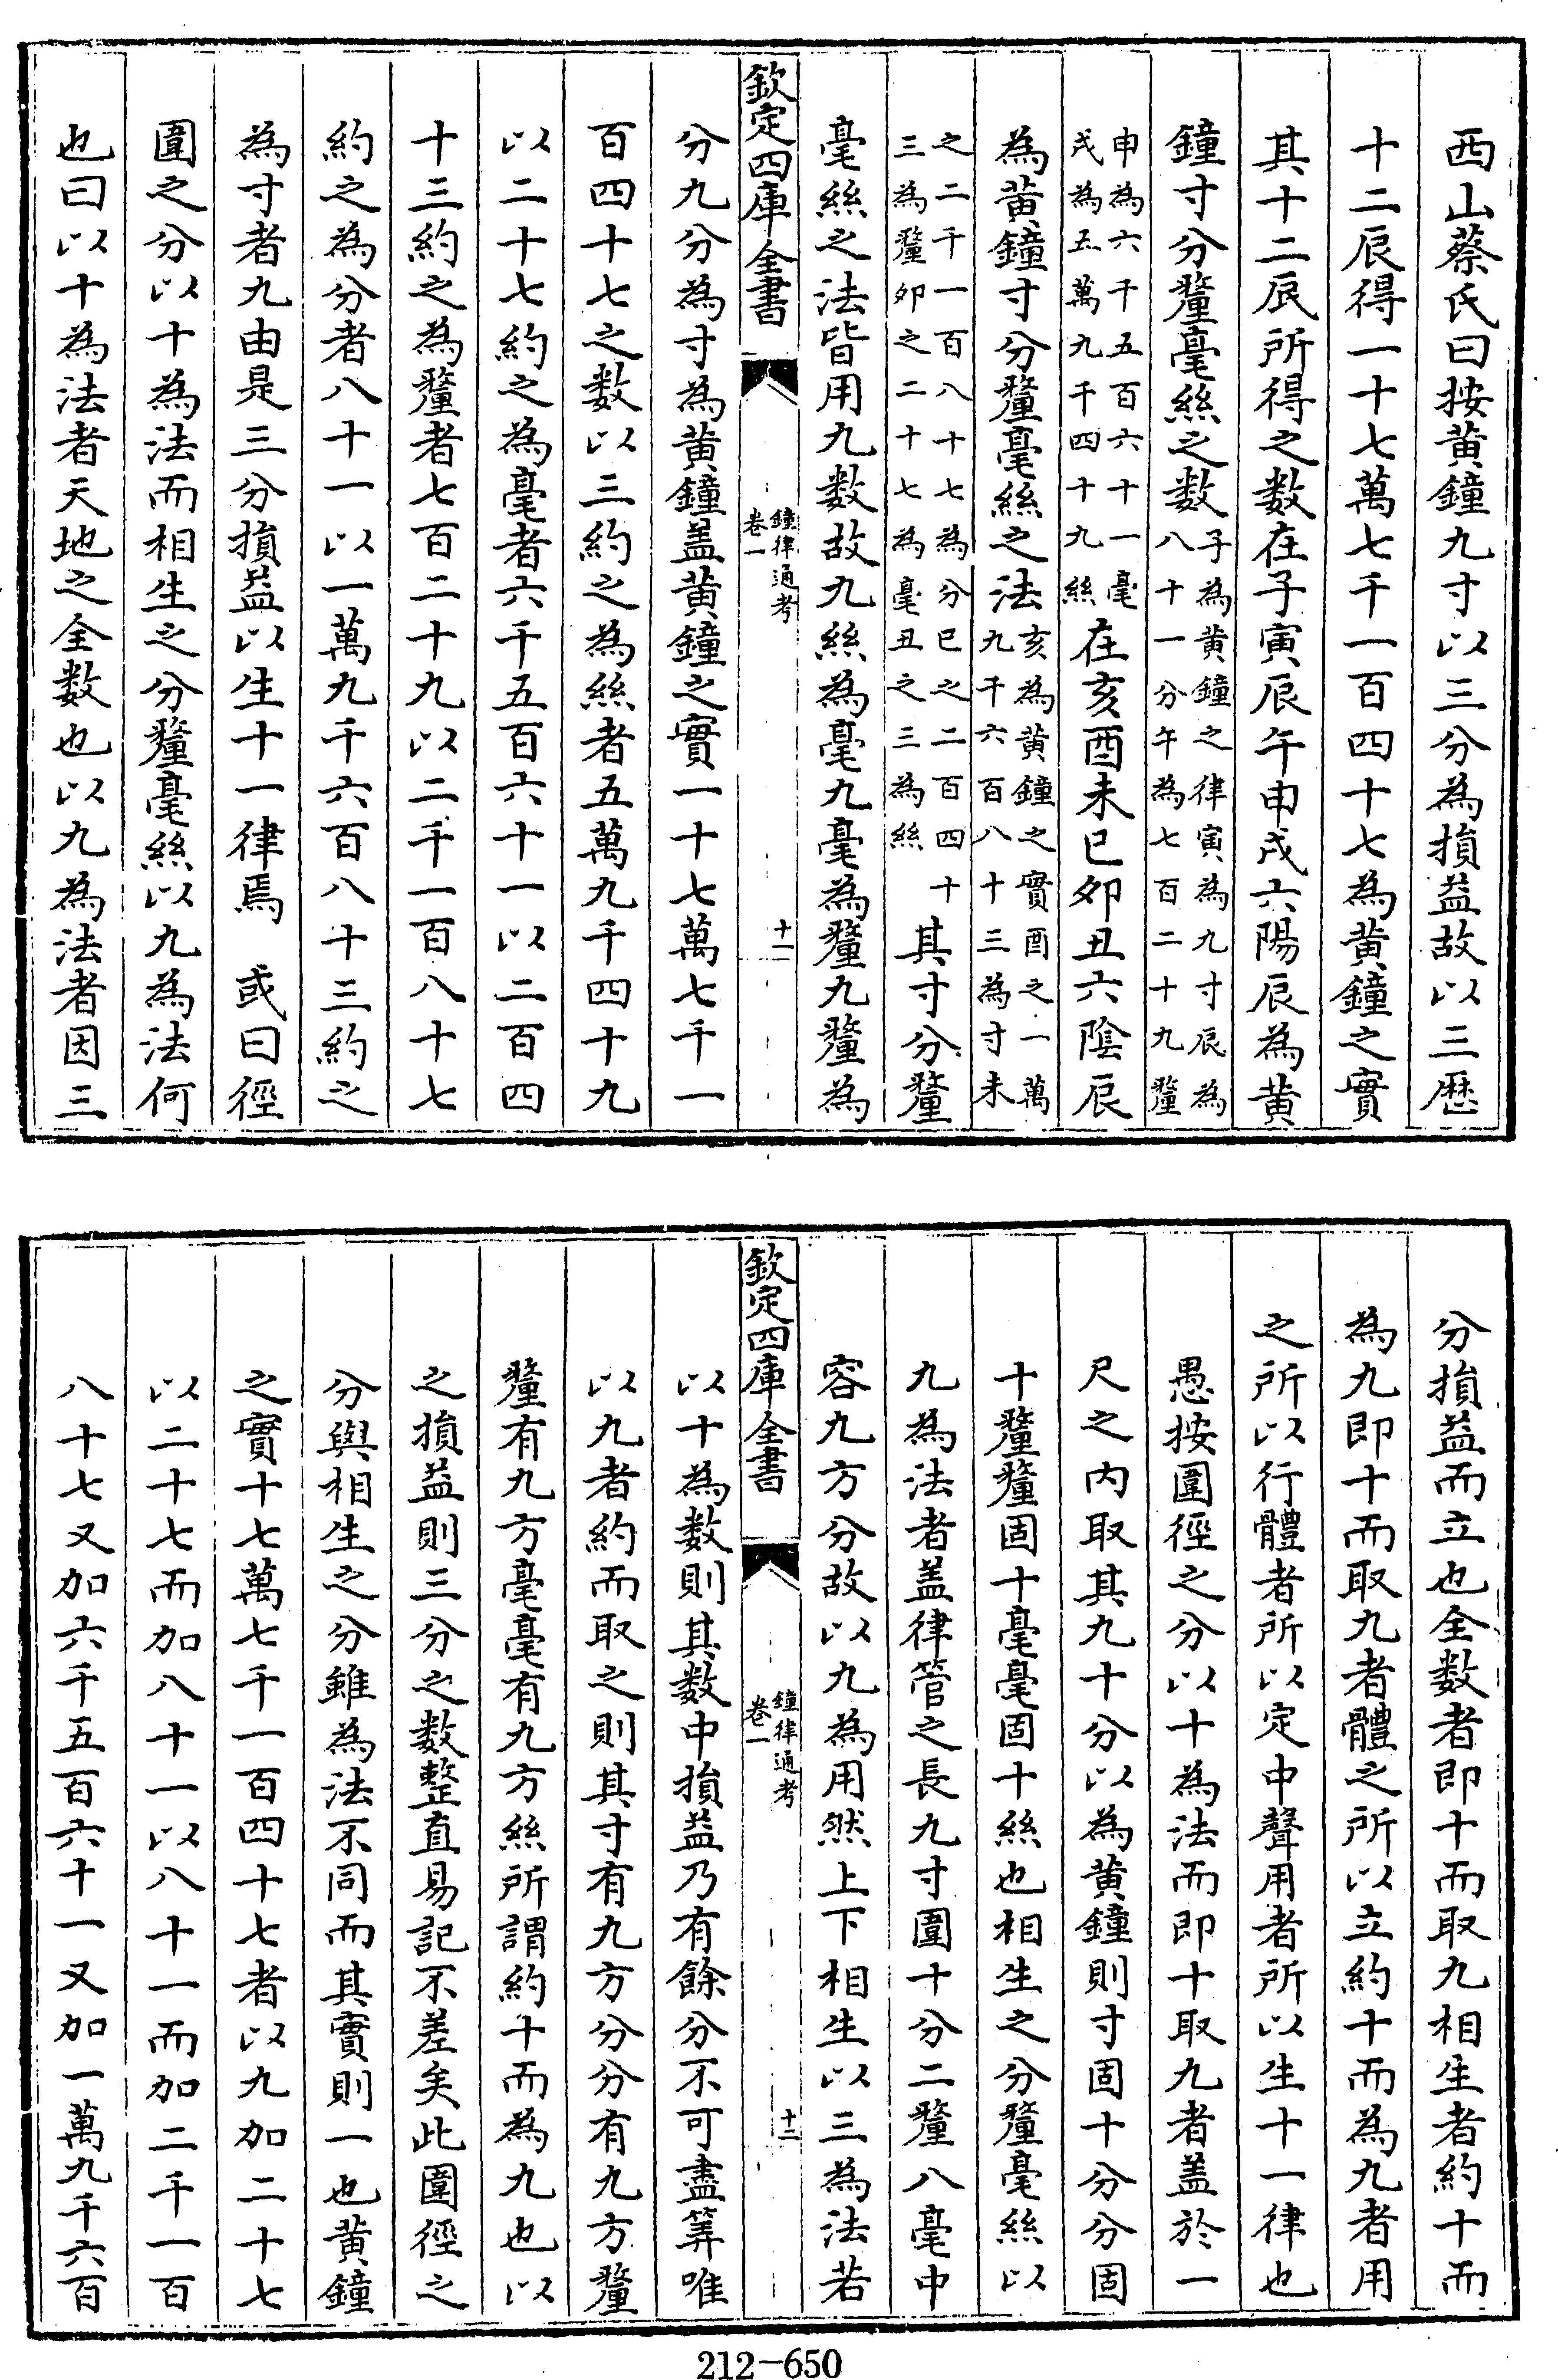 西山蔡氏曰按黃鐘九寸以三分為損益故以三歴
十二辰得一十七萬七千一百四十七為黃鐘之實
其十二辰所得之數在子寅辰午申戌六陽辰為黃
鐘寸分釐毫絲之数子為黃鐘之律寅為九寸辰為八十一分午為七百二十九釐
申為六千五百六十一毫戌為五萬九千四十九絲在亥酉未巳夘丑六陰辰
為黃鐘寸分釐毫絲之法亥為黃鐘之實酉之一萬九千六百八十三為寸未
之二千一百八十七為分巳之二百四十三為釐夘之二十七為毫丑之三為絲其寸分釐
毫絲之法皆用九数故九絲為毫九毫為釐九釐為
欽定四庫全書
鐘律通考
卷一
十一
分九分為寸為黃鐘盖黃鐘之實一十七萬七千一
百四十七之数以三約之為絲者五萬九千四十九
以二十七約之為毫者六千五百六十一以二百四
十三約之為釐者七百二十九以二千一百八十七
約之為分者八十一以一萬九千六百八十三約之
為寸者九由是三分損益以生十一律焉 或曰徑
圍之分以十為法而相生之分釐毫絲以九為法何
也曰以十為法者天地之全数也以九為法者因三
分損益而立也全数者即十而取九相生者約十而
為九即十而取九者體之所以立約十而為九者用
之所以行體者所以定中聲用者所以生十一律也
愚按圍徑之分以十為法而即十取九者盖於一
尺之内取其九十分以為黃鐘則寸固十分分固
十釐釐固十毫毫固十絲也相生之分釐毫絲以
九為法者盖律管之長九寸圍十分二釐八毫中
容九方分故以九為用然上下相生以三為法若
欽定四庫全書
鐘律通考
卷一
十二
以十為数則其数中損益乃有餘分不可盡筭唯
以九者約而取之則其寸有九方分分有九方釐
釐有九方毫毫有九方絲所謂約十而為九也以
之損益則三分之数整直易記不差矣此圍徑之
分與相生之分雖為法不同而其實則一也黃鐘
之實十七萬七千一百四十七者以九加二十七
以二十七而加八十一以八十一而加二千一百
八十七又加六千五百六十一又加一萬九千六百
212-650